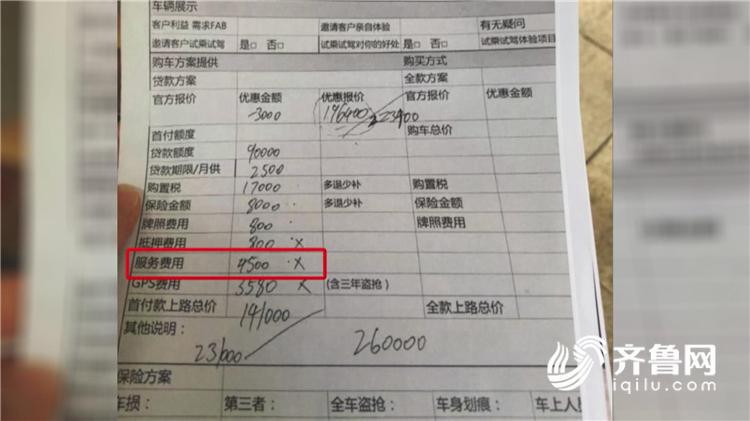 车辆展示
客户利益 需求FAB 邀请客户亲自体验 有无疑问
邀请客户试乘试驾 是□ 否□ 试乘试驾对你的好处 是□ 否□ 试乘试驾体验项目
购车方案提供 购买方式
贷款方案 全款方案
官方报价 优惠金额 优惠报价 官方报价 优惠金额
-3000 196400
首付额度 购车总价
贷款额度 90000
贷款期限/月供 2500
购置税 17000 多退少补 购置税
保险金额 8000 多退少补 保险金额
牌照费用 800 牌照费用
抵押费用 800 ×
服务费用 4500 ×
GPS费用 3580 × (含三年盗抢)
首付款上路总价 141000 全款上路总价
其他说明:
231000 260000
保险方案
车损: 第三者: 全车盗抢: 车身划痕: 车上人员
齐鲁网
iqilu.com